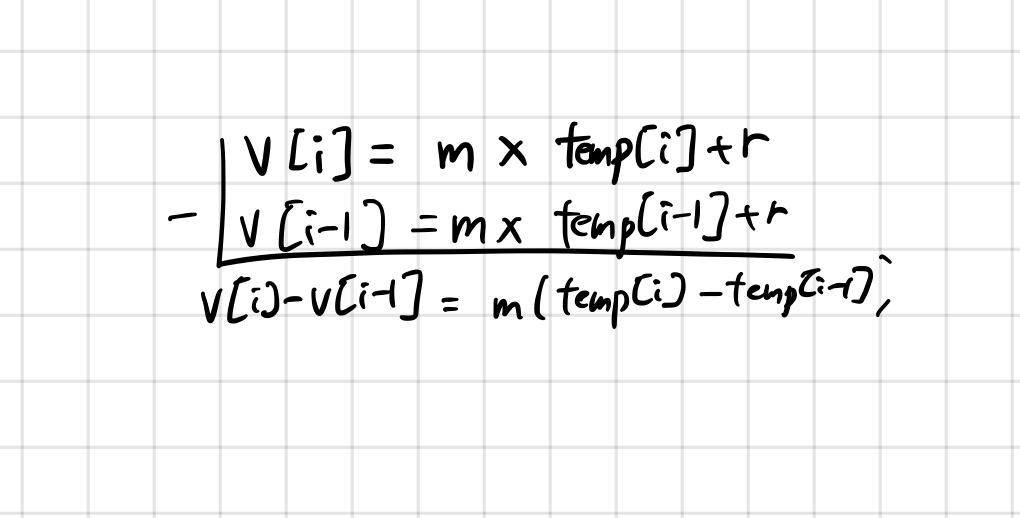 V[i] = m × temp[i]+r
- V[i-1] = m × temp[i-1]+r
V[i]-V[i-1] = m(temp[i]-temp[i-1])